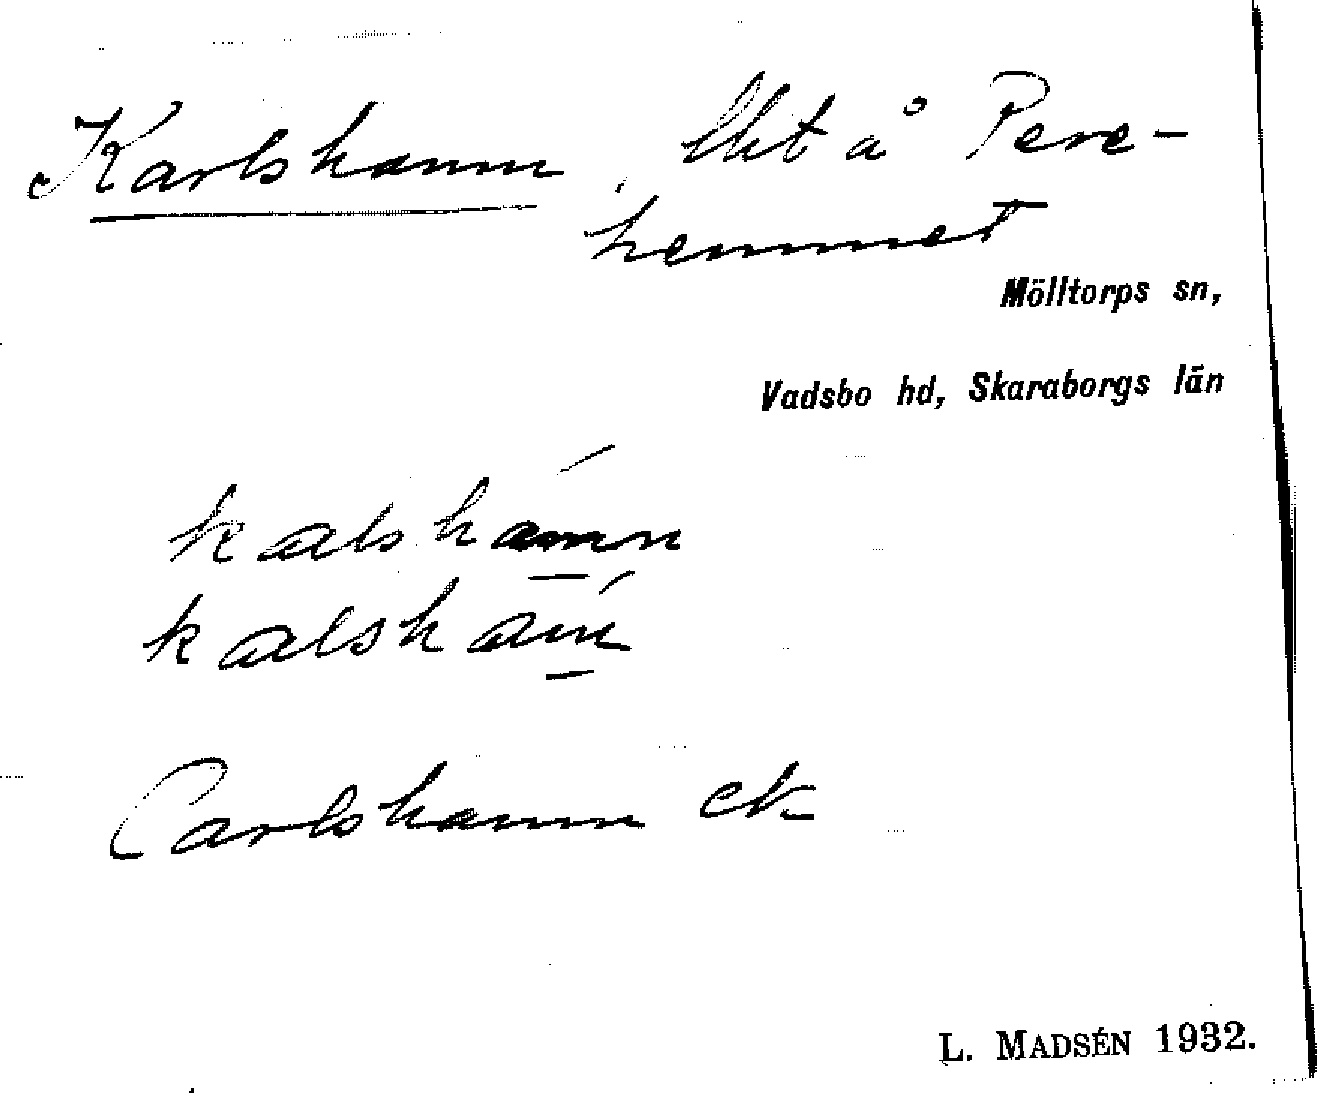 Karlshamn, lht å Pere-
hemmet
Mölltorps sn,
Vadsbo hd, Skaraborgs län
kalshamn
Carlshamn ek
L. MADSÉN 1932.